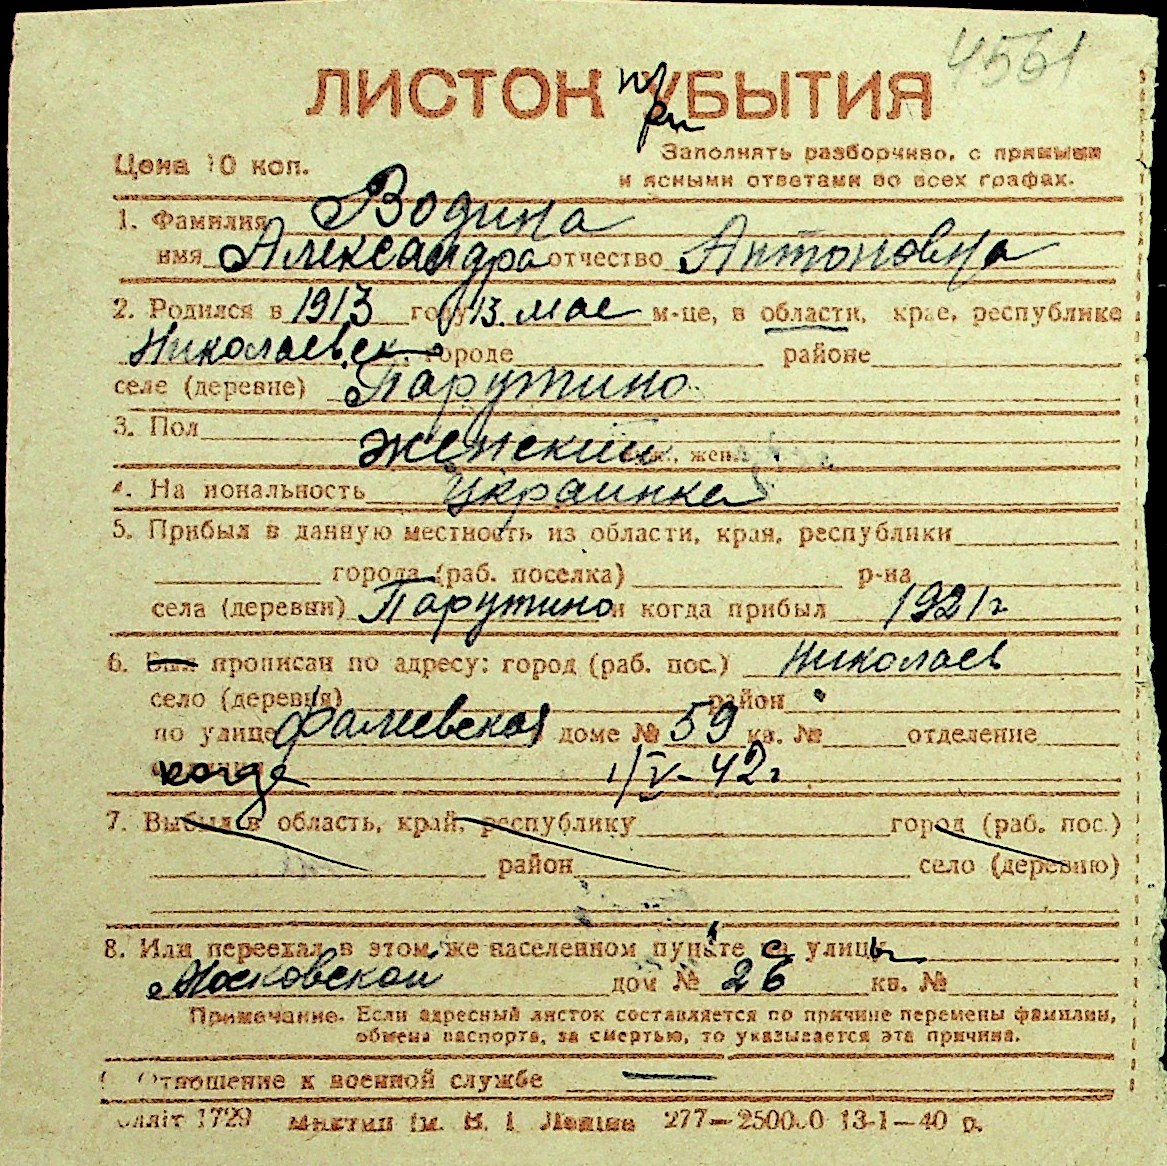 4561
ЛИСТОК при УБЫТИЯ
Цена 10 коп.
Заполнять разборчиво, с прямыми
и ясными ответами во всех графах.
1. Фамилия Водина
имя Александра отчество Антоновна
2. Родился в 1913 году 13. мае м-це, в области, крае, республике
Николаевск. городе районе
селе (деревне) Парутино
3. Пол женский жен.
4. На иональность украинка
5. Прибыл в данную местность из области, края, республики
города (раб. поселка) р-на
села (деревни) Парутино и когда прибыл 1921 г
6. Был прописан по адресу: город (раб. пос.) Николаев
село (деревня) район
по улице Фалиевская доме № 59 кв. № отделение
когда 1/V-42 г.
7. Выбыл в область, край, республику город (раб. пос.)
район село (деревню)
8. Или переехал в этом же населенном пункте с улицы
Московской дом № 26 кв. №
Примечание. Если адресный листок составляется по причине перемены фамилии,
обмена паспорта, за смертью, то указывается эта причина.
Отношение к военной службе —
1729 Миктип ім. В. І. Леніна 277—25000 13-1—40 р.